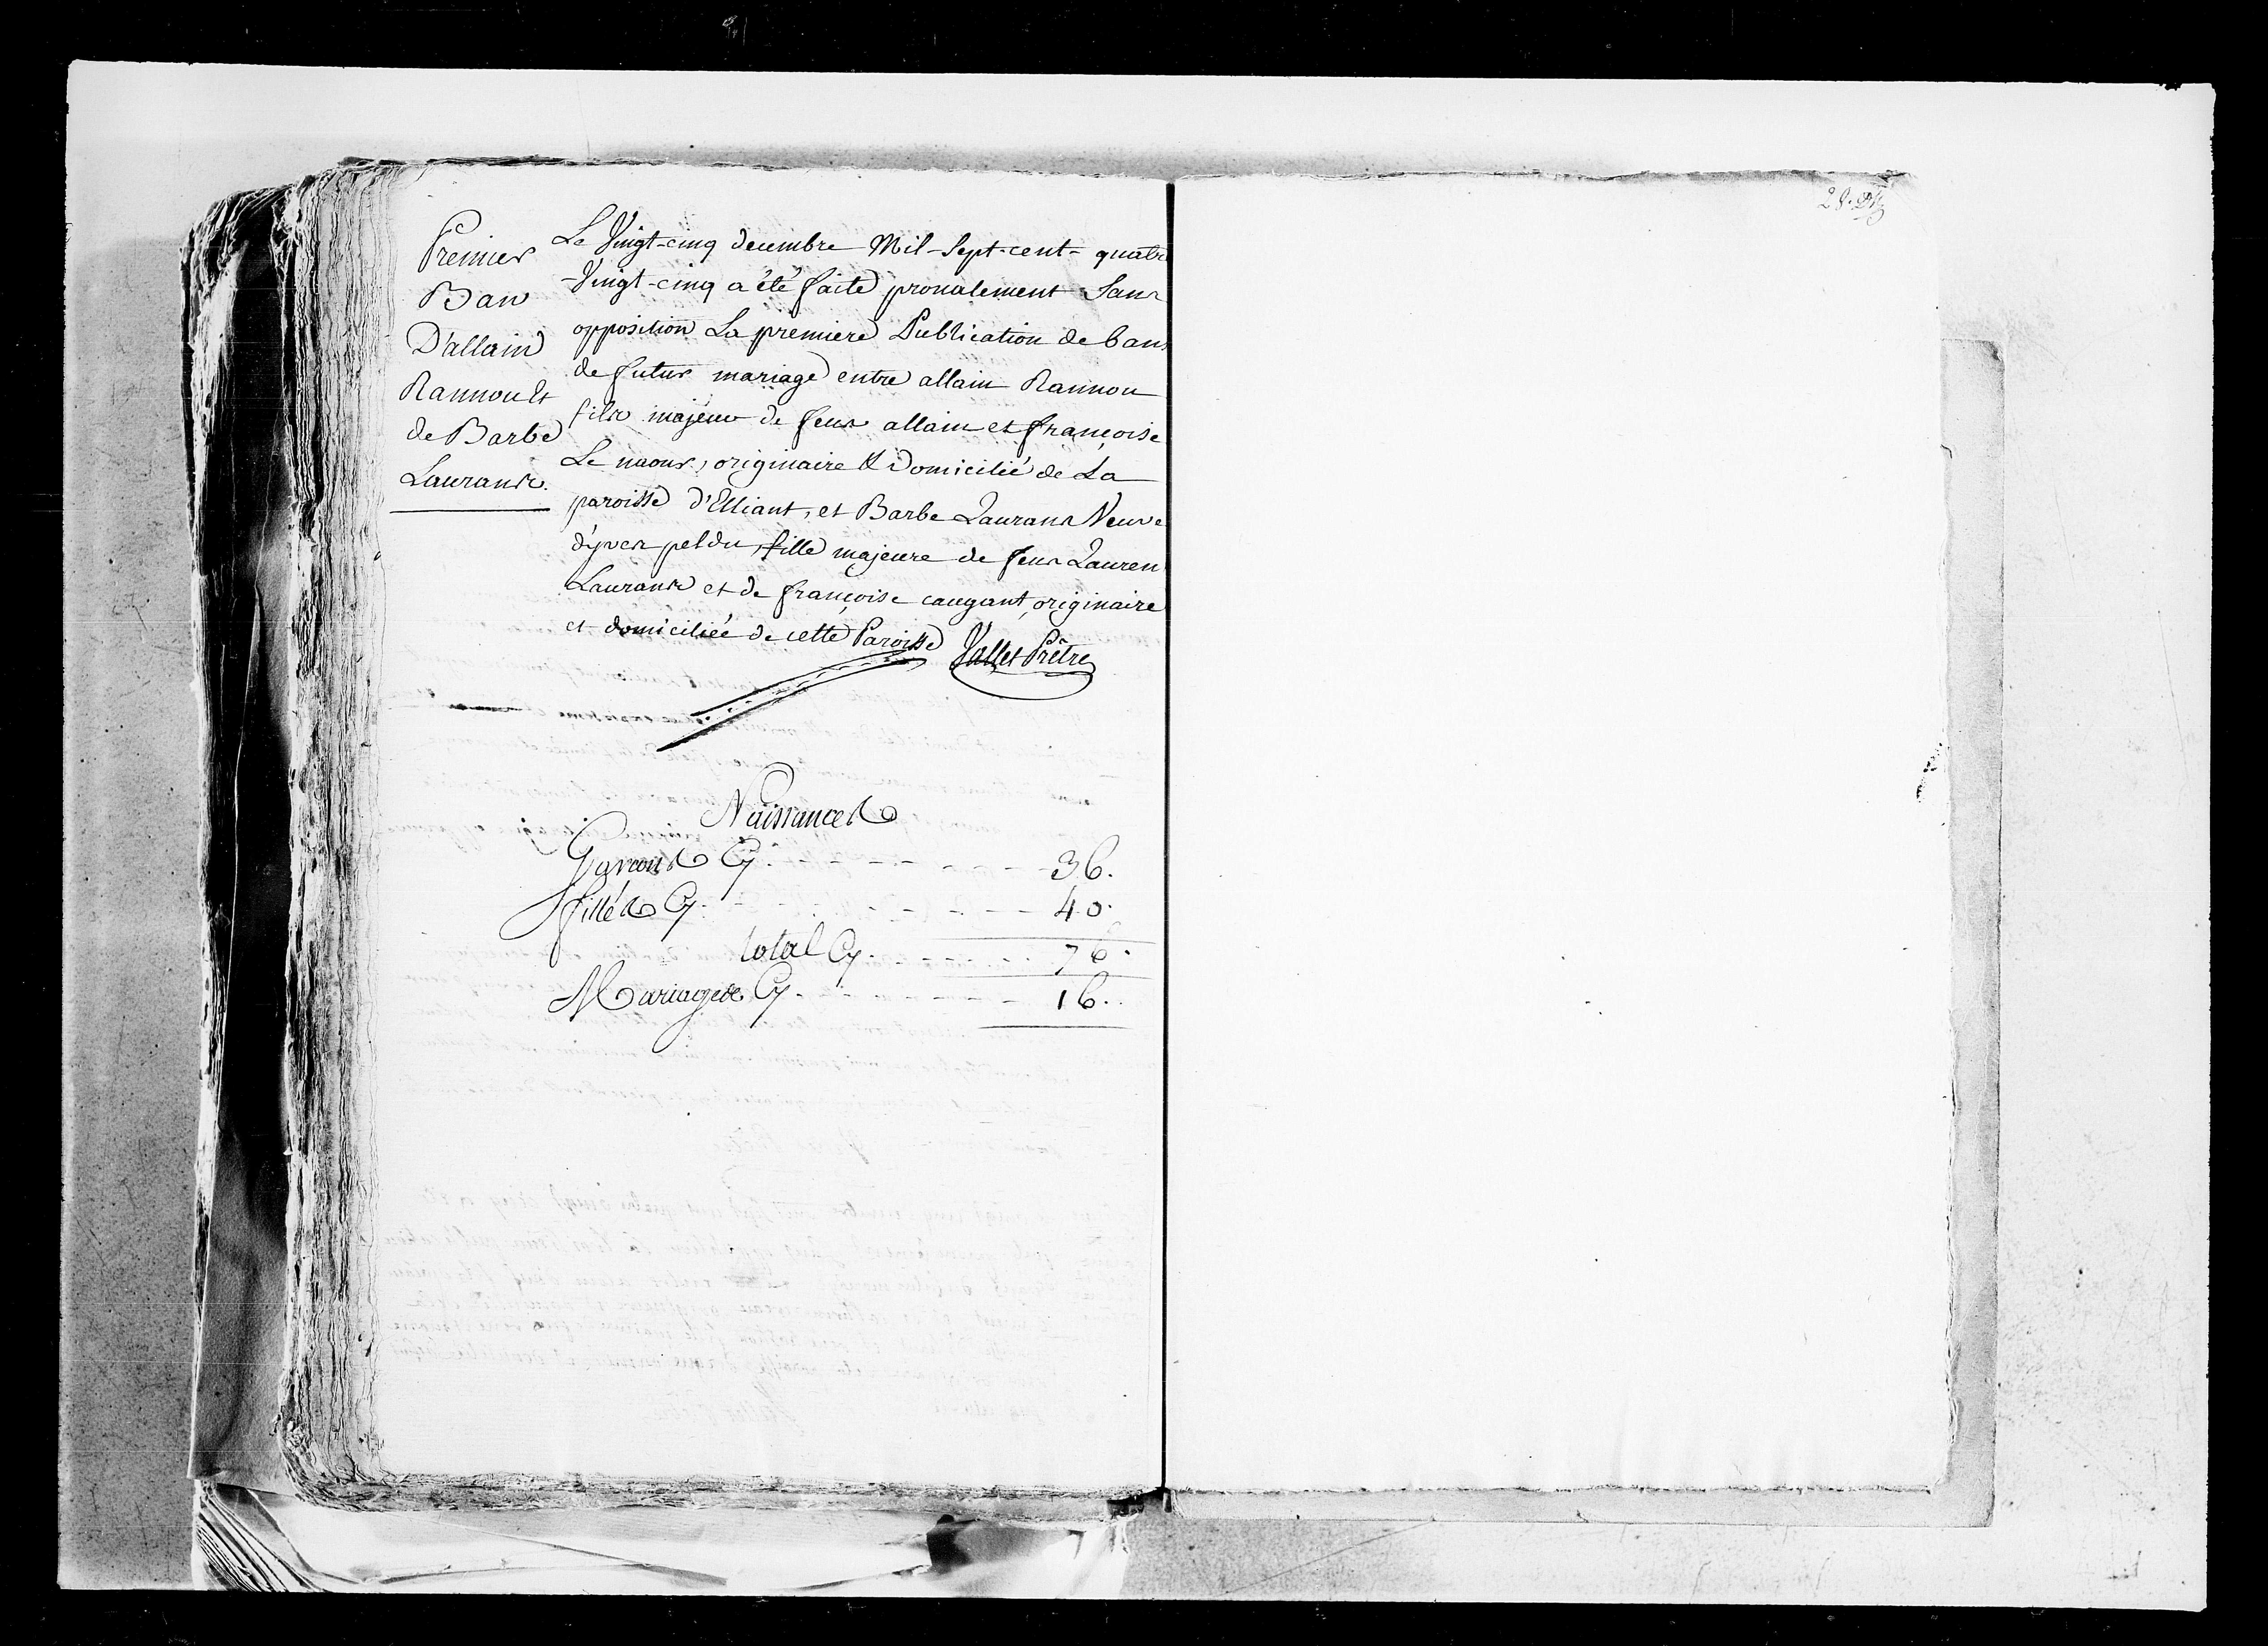 Premier
Ban
D'allain
Rannou Et
de Barbe
Laurans.
Le Vingt-cinq decembre Mil-Sept-cent-quatre
-Vingt-cinq a été faite pronalement Sans
opposition La premiere Publication de bans
de futur mariage entre allain Rannou
fils majeur de feus allain et françoise
Le naour, originaire & Domicilié de La
paroisse d'Elliant, et Barbe Laurans Veuve
d'yves peldu, fille majeure de feus Lauren
Laurans et de françoise caugant, originaire
et domiciliée de cette Paroisse Vallet Prêtre
Naissances
Garcons Cy. 36.
filles Cy. 40.
total Cy. 76.
Mariages Cy. 16.
28.